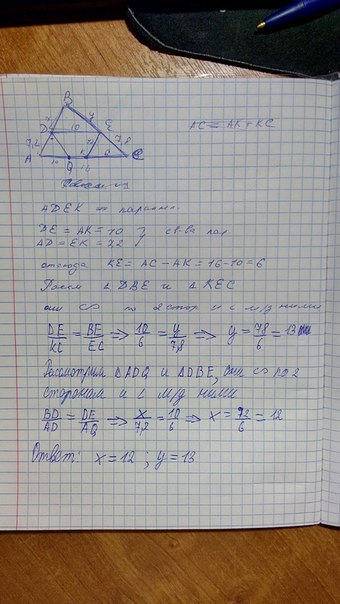 B
x y
D 10 E
7,2 7,8
AC = AK + KC
A 10 Q K 6 C
16
ADEK – паралл.
DE = AK = 10 } св-ва пар
AD = EK = 7,2 }
отсюда KE = AC - AK = 16-10 = 6
Рассм △ DBE и △ KEC
они ∽ по 2 стор и ∠ м/д ними
DE/KC = BE/EC ⇒ 10/6 = y/7,8 ⇒ y = 78/6 = 13
Рассмотрим △ADQ и △DBE, они ∽ по 2
сторонам и ∠ м/д ними
BD/AD = DE/AQ ⇒ x/7,2 = 10/6 ⇒ x = 72/6 = 12
Ответ: x = 12 ; y = 13